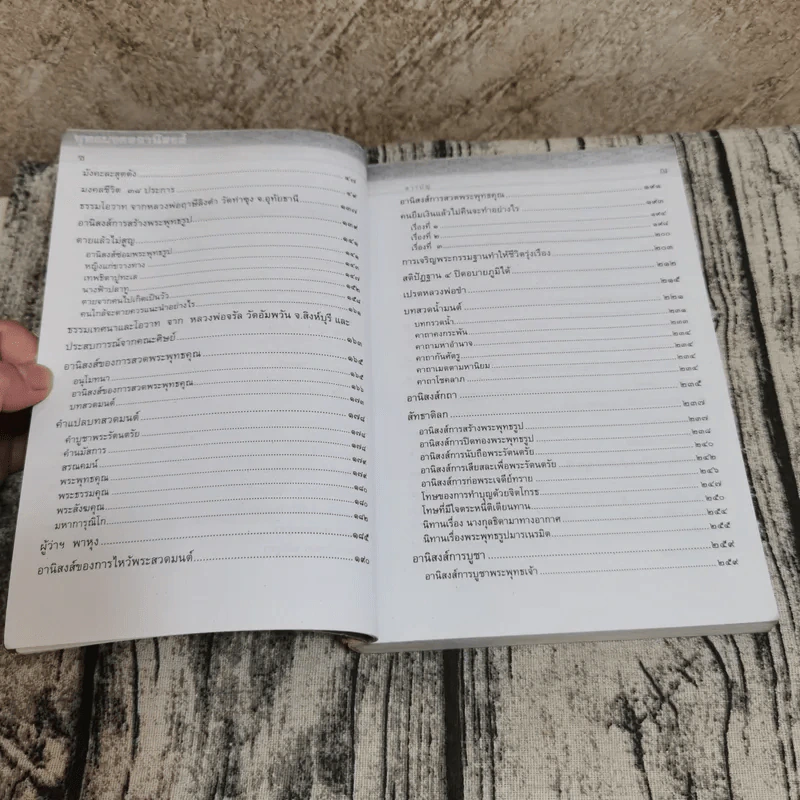 พุทธมงคลอานิสงส์
ช
มังคะละสุตตัง ๔๘
มงคลชีวิต ๓๘ ประการ ๔๑
ธรรมโอวาท จากหลวงพ่อฤาษีลิงดำ วัดท่าซุง จ.อุทัยธานี ๑๓๗
อานิสงส์การสร้างพระพุทธรูป ๑๓๑
ตายแล้วไม่สูญ ๑๔๑
อานิสงส์ซ่อมพระพุทธรูป ๑๔๑
หญิงแก่ขวางทาง
เทพธิดาปูทะเล ๑๔๘
นางฟ้าปลาทู ๑๕๒
ตายจากคนไปเกิดเป็นวัว ๑๕๘
คนใกล้จะตายควรแนะนำอย่างไร ๑๖๑
ธรรมเทศนาและโอวาท จาก หลวงพ่อจรัล วัดอัมพวัน จ.สิงห์บุรี และ
ประสบการณ์จากคณะศิษย์ ๑๖๓
อานิสงส์ของการสวดพระพุทธคุณ ๑๖๕
อนุโมทนา ๑๖๕
อานิสงส์ของการสวดพระพุทธคุณ ๑๖๖
บทสวดมนต์
คำแปลบทสวดมนต์ ๑๗๘
คำบูชาพระรัตนตรัย ๑๗๘
คำนมัสการ ๑๗๘
สรณคมน์ ๑๗๙
พระพุทธคุณ ๑๗๙
พระธรรมคุณ ๑๘๐
พระสังฆคุณ ๑๘๐
มหาการุณิโก ๑๘๒
ผู้ว่าฯ พาหุง ๑๘๕
อานิสงส์ของการไหว้พระสวดมนต์ ๑๙๐
สารบัญ
อานิสงส์การสวดพระพุทธคุณ ๑๙๑
คนยืมเงินแล้วไม่คืนจะทำอย่างไร ๑๙๓
เรื่องที่ ๑ ๑๙๔
เรื่องที่ ๒ ๑๙๘
เรื่องที่ ๓ ๒๐๐
การเจริญพระกรรมฐานทำให้ชีวิตรุ่งเรือง ๒๐๓
สติปัฏฐาน ๔ ปิดอบายภูมิได้ ๒๑๒
เปรตหลวงพ่อขำ ๒๑๕
บทสวดน้ำมนต์ ๒๒๑
บทกรวดน้ำ ๒๒๑
คาถาคงกระพัน ๒๓๓
คาถามหาอำนาจ ๒๓๔
คาถากันศัตรู ๒๓๔
คาถาเมตตามหานิยม ๒๓๔
คาถาโชคลาภ ๒๓๔
อานิสงส์กถา ๒๓๕
สัทธาติลก ๒๓๗
อานิสงส์การสร้างพระพุทธรูป ๒๓๗
อานิสงส์การปิดทองพระพุทธรูป ๒๓๘
อานิสงส์การนับถือพระรัตนตรัย ๒๔๐
อานิสงส์การเสียสละเพื่อพระรัตนตรัย ๒๔๒
อานิสงส์การก่อพระเจดีย์ทราย ๒๔๖
โทษของการทำบุญด้วยจิตโกรธ ๒๔๗
โทษที่มีใจตระหนี่ติเตียนทาน ๒๕๐
นิทานเรื่อง นางกุลธิดามาทางอากาศ ๒๕๔
นิทานเรื่องพระพุทธรูปมารเนรมิต ๒๕๕
อานิสงส์การบูชา ๒๕๙
อานิสงส์การบูชาพระพุทธเจ้า ๒๕๙